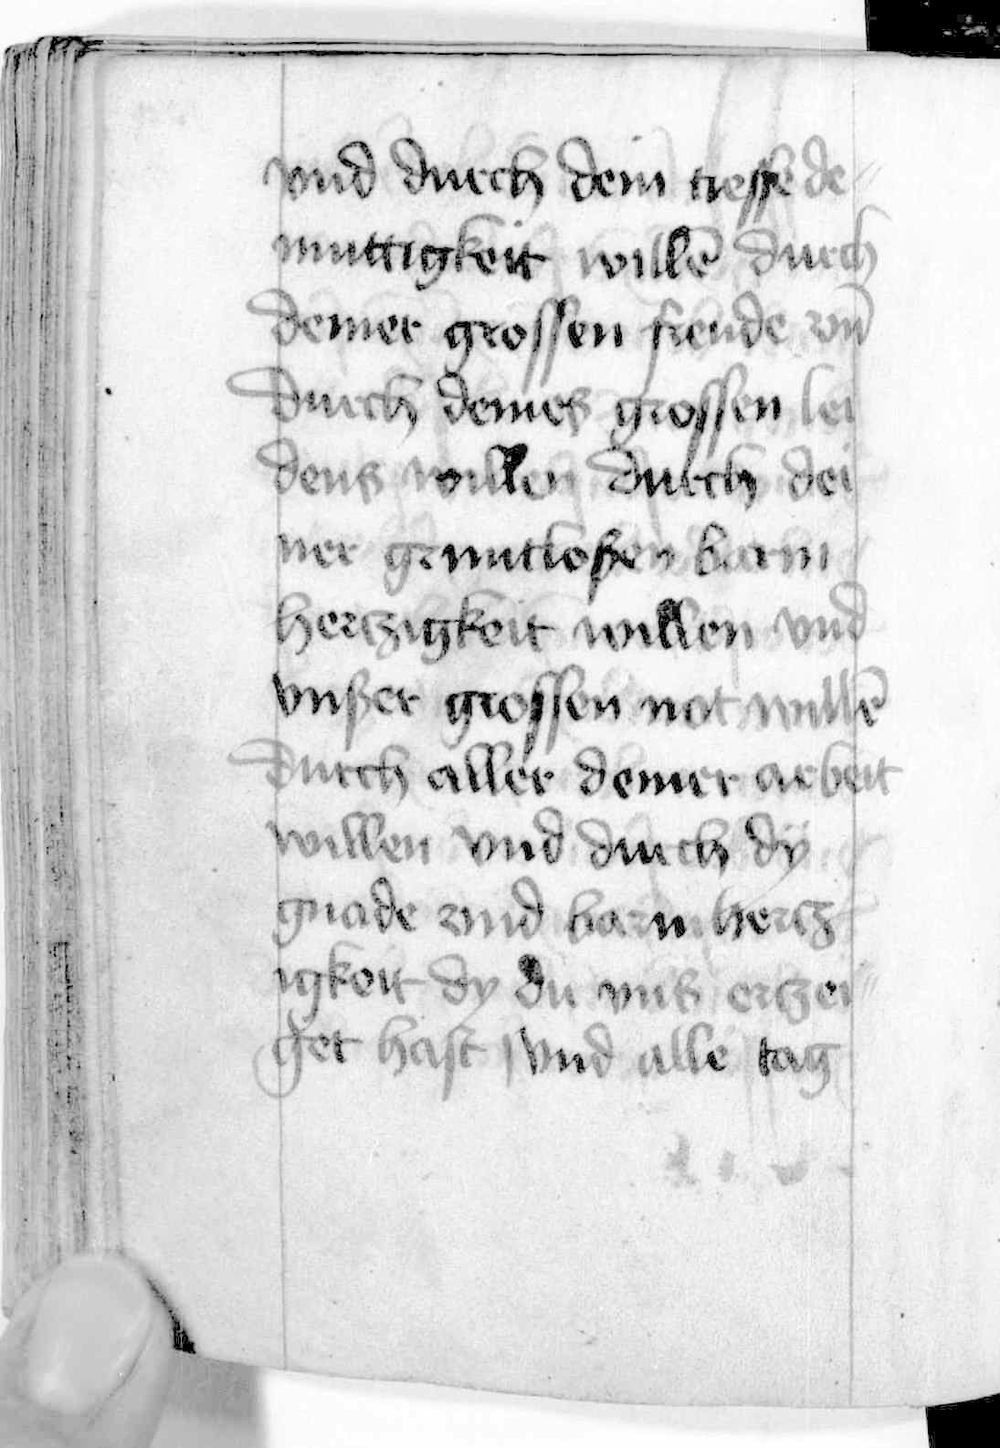 vnd durch dein tieffe de
muttigkeit willē durch
deiner grossen freude vn̄
durch deines grossen lei
dens willen durch dei
ner gruntloßen barm
hertzigkeit willen vnd
vnßer grossen not willē
durch aller deiner arbeit
willen vnd durch dÿ
gnade vnd barmhertz
igkeit dy du vns ertzei
get hast vnd alle tag